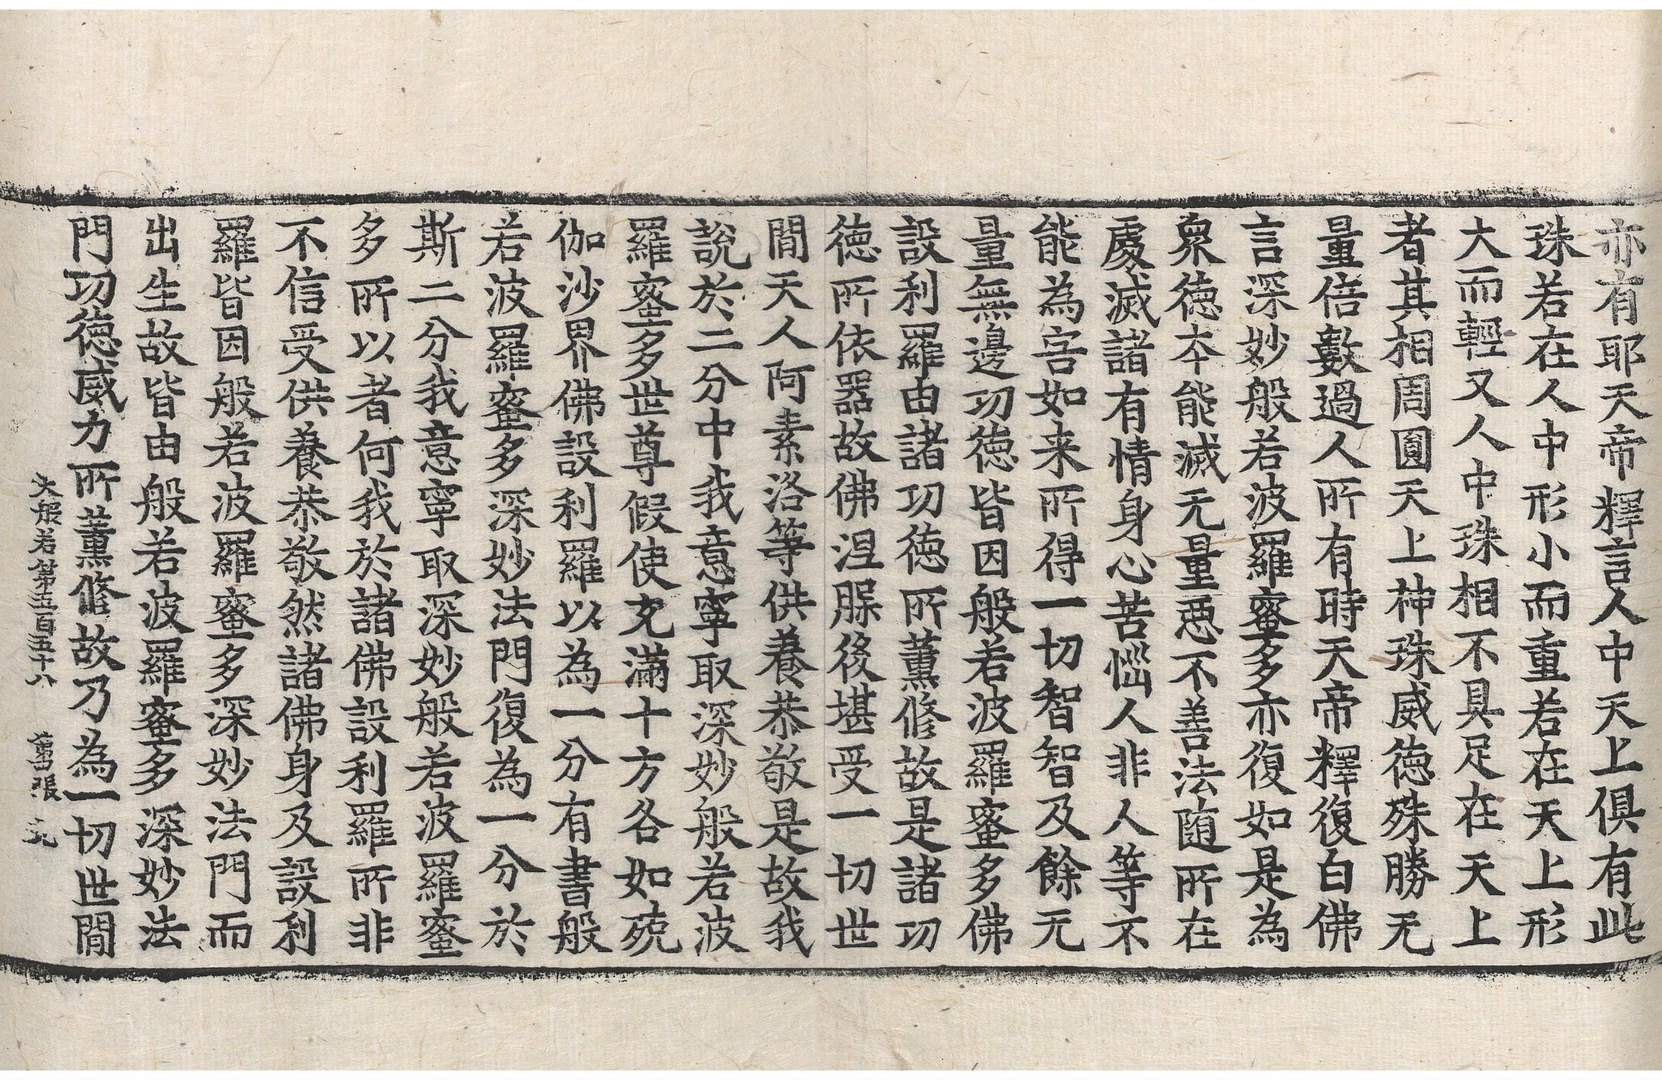 亦有耶天帝釋言人中天上俱有此
珠若在人中形小而重若在天上形
大而輕又人中珠相不具足在天上
者其相周圎天上神珠威德殊勝无
量倍數過人所有時天帝釋復白佛
言深妙般若波羅蜜多亦復如是為
衆德本能滅无量惡不善法随所在
處滅諸有情身心苦惱人非人等不
能為害如来所得一切智智及餘无
量無邊功德皆因般若波羅蜜多佛
設利羅由諸功德所薰修故是諸功
德所依器故佛涅脲後堪受一切世
間天人阿素洛等供養恭敬是故我
說於二分中我意寧取深妙般若波
羅蜜多世尊假使充滿十方各如殑
伽沙界佛設利羅以為一分有書般
若波羅蜜多深妙法門復為一分於
斯二分我意寧取深妙般若波羅蜜
多所以者何我於諸佛設利羅所非
不信受供養恭敬然諸佛身及設利
羅皆因般若波羅蜜多深妙法門而
出生故皆由般若波羅蜜多深妙法
門功德威力所薰修故乃為一切世間
大般若第五百五十六 張